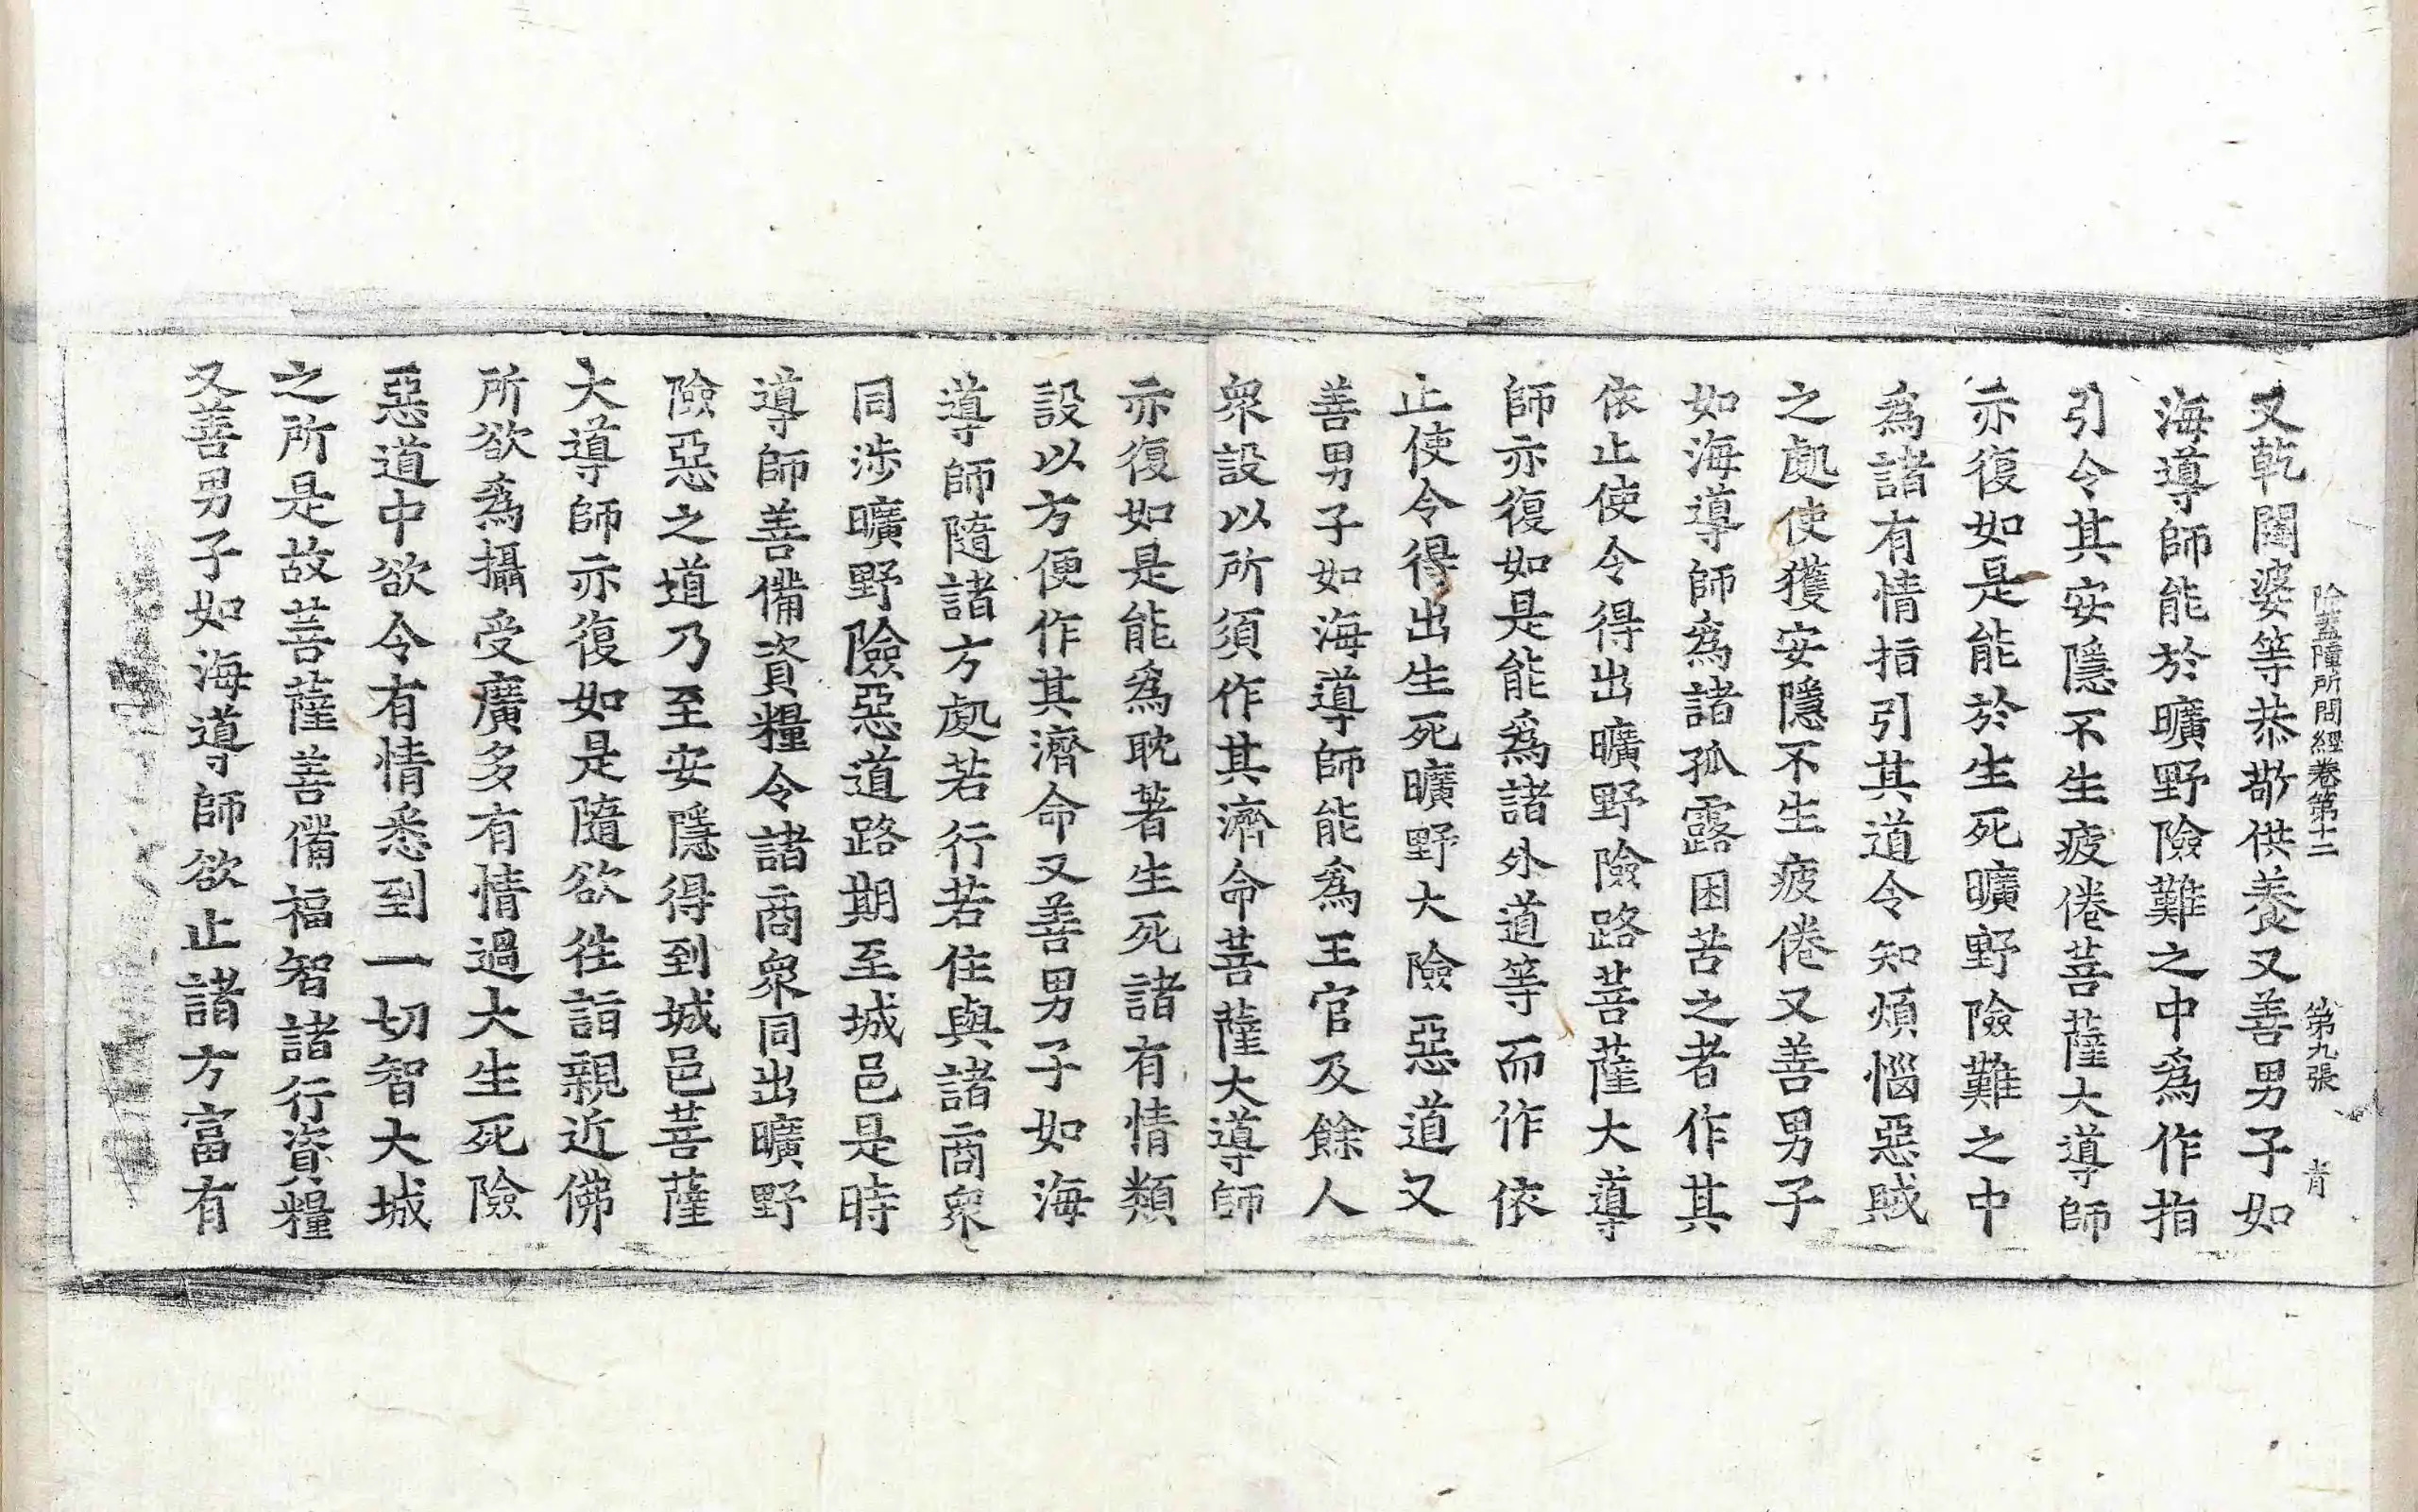 除蓋障所問經卷第十二 第九張 青
又乾闥婆等恭敬供養又善男子如
海導師能於曠野險難之中爲作指
引令其安隱不生疲倦菩薩大導師
亦復如是能於生死曠野險難之中
爲諸有情指引其道令知煩惱惡賊
之處使獲安隱不生疲倦又善男子
如海導師爲諸孤露困苦之者作其
依止使令得出曠野險路菩薩大導
師亦復如是能爲諸外道等而作依
止使令得出生死曠野大險惡道又
善男子如海導師能爲王官及餘人
衆設以所須作其濟命菩薩大導師
亦復如是能爲耽著生死諸有情類
設以方便作其濟命又善男子如海
導師隨諸方處若行若住與諸商衆
同涉曠野險惡道路期至城邑是時
導師善備資糧令諸商衆同出曠野
險惡之道乃至安隱得到城邑菩薩
大導師亦復如是隨欲往詣親近佛
所欲爲攝受廣多有情過大生死險
惡道中欲令有情悉到一切智大城
之所是故菩薩善備福智諸行資糧
又善男子如海導師欲止諸方富有